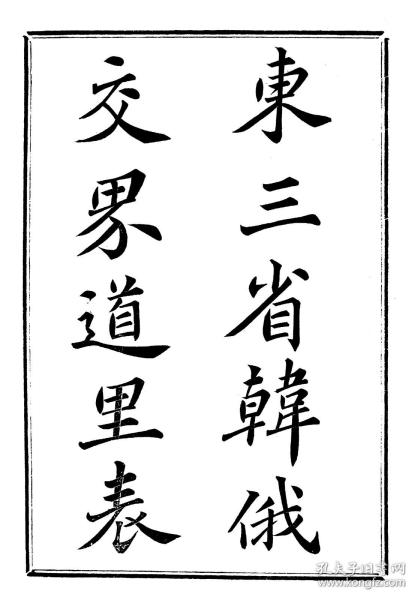 東三省韓俄
交界道里表
孔夫子旧书网